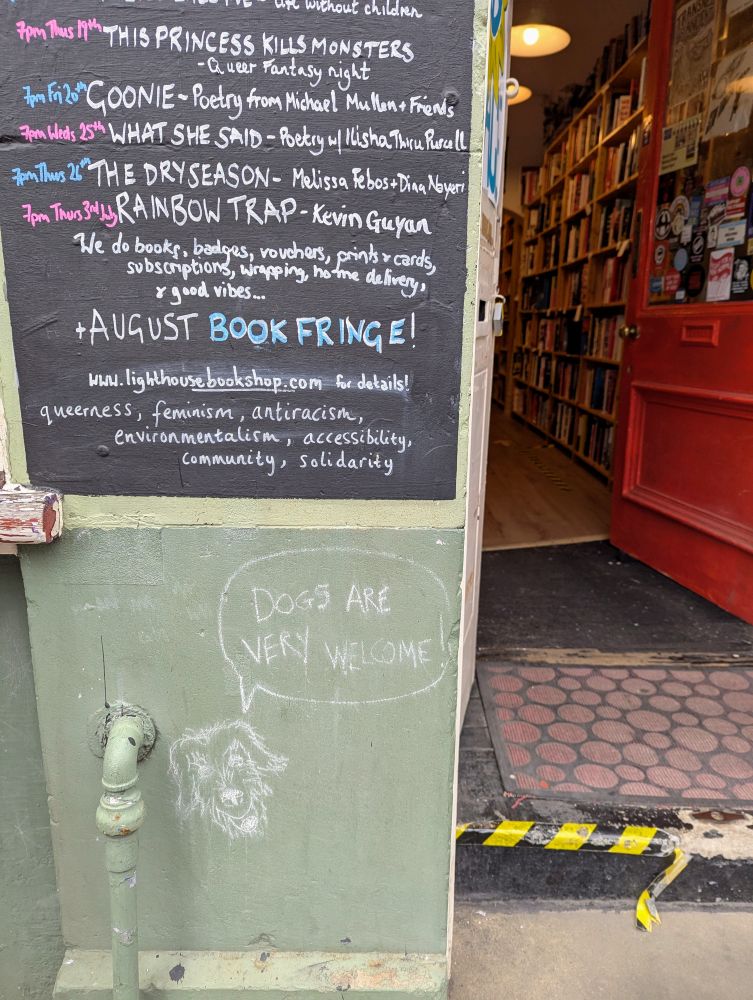 life without children
7pm Thus 19th THIS PRINCESS KILLS MONSTERS
- Queer Fantasy night
7pm Fri 20th GOONIE ~ Poetry from Michael Mullen + Friends
7pm Weds 25th WHAT SHE SAID - Poetry w/ Ilisha Thiru Purcell
7pm Thus 26th THE DRY SEASON - Melissa Febos + Dina Nayeri
7pm Thurs 3rd July RAINBOW TRAP - Kevin Guyan
We do books, badges, vouchers, prints & cards,
subscriptions, wrapping, home delivery,
& good vibes...
+ AUGUST BOOK FRINGE!
www.lighthousebookshop.com for details!
queerness, feminism, antiracism,
environmentalism, accessibility,
community, solidarity
DOGS ARE
VERY WELCOME